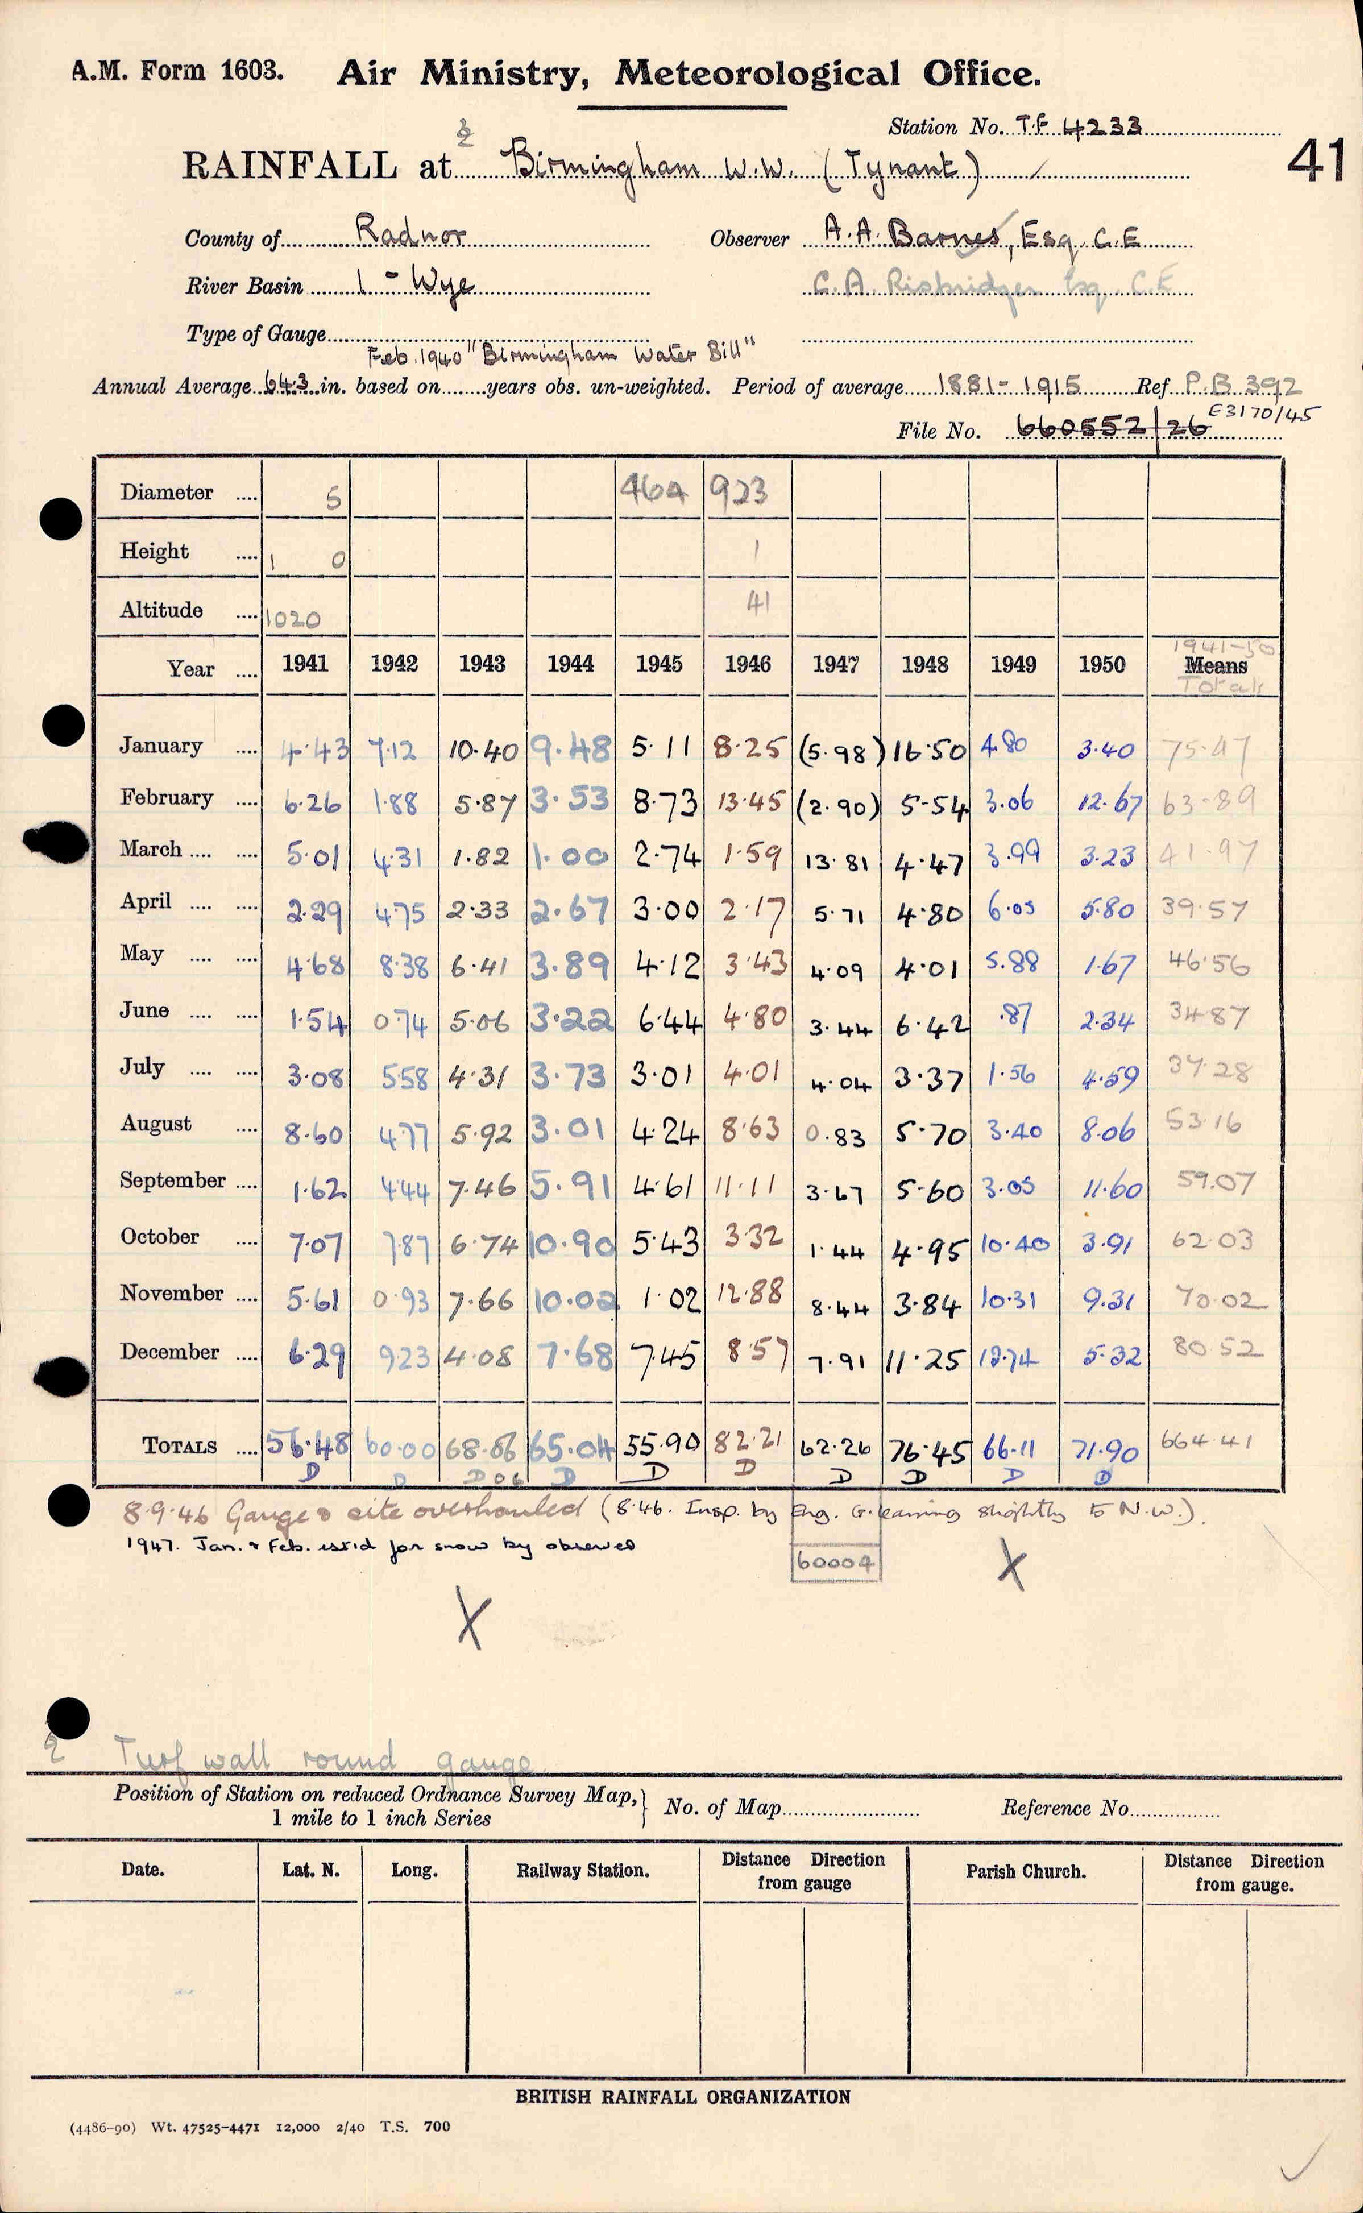 A.M. Form 1603. Air Ministry, Meteorological Office.
Station No. T.F 4233
RAINFALL at Birmingham W.W. (Tynant)
41
County of Radnor Observer A.A. Barnes, Esq. C.E
River Basin 1 - Wye C.A. Risbridger Esq. C.E
Type of Gauge
Feb. 1940 "Birmingham Water Bill"
Annual Average 64.3 in. based on years obs. un-weighted. Period of average 1881-1915 Ref P.B 392
E3170/45
File No. 660552/26
Diameter 5 464 923
Height 1 0 1
Altitude 1020 41
1941-50
Year 1941 1942 1943 1944 1945 1946 1947 1948 1949 1950 Means
Totals
January 4.43 7.12 10.40 9.48 5.11 8.25 (5.98) 16.50 4.80 3.40 75.47
February 6.26 1.88 5.87 3.53 8.73 13.45 (2.90) 5.54 3.06 12.67 63.89
March 5.01 4.31 1.82 1.00 2.74 1.59 13.81 4.47 3.99 3.23 41.97
April 2.29 4.75 2.33 2.67 3.00 2.17 5.71 4.80 6.05 5.80 39.57
May 4.68 8.38 6.41 3.89 4.12 3.43 4.09 4.01 5.88 1.67 46.56
June 1.54 0.74 5.06 3.22 6.44 4.80 3.44 6.42 .87 2.34 34.87
July 3.08 5.58 4.31 3.73 3.01 4.01 4.04 3.37 1.56 4.59 37.28
August 8.60 4.77 5.92 3.01 4.24 8.63 0.83 5.70 3.40 8.06 53.16
September 1.62 4.44 7.46 5.91 4.61 11.11 3.67 5.60 3.05 11.60 59.07
October 7.07 7.87 6.74 10.90 5.43 3.32 1.44 4.95 10.40 3.91 62.03
November 5.61 0.93 7.66 10.02 1.02 12.88 8.44 3.84 10.31 9.31 70.02
December 6.29 9.23 4.08 7.68 7.45 8.57 7.91 11.25 12.74 5.32 80.52
TOTALS 56.48 60.00 68.06 65.04 55.90 82.21 62.26 76.45 66.11 71.90 664.41
D D D 06 D D D D D D D
8.9.46 Gauge & site overhauled (8.46. Insp. by Eng. G. leaning slightly to N.W.).
1947. Jan. & Feb. estd for snow by observer
60004
X X
2 Turf wall round gauge
Position of Station on reduced Ordnance Survey Map, 1 mile to 1 inch Series No. of Map Reference No.
Date. Lat. N. Long. Railway Station. Distance Direction from gauge Parish Church. Distance Direction from gauge.
BRITISH RAINFALL ORGANIZATION
(4486-90) Wt. 47525-4471 12,000 2/40 T.S. 700